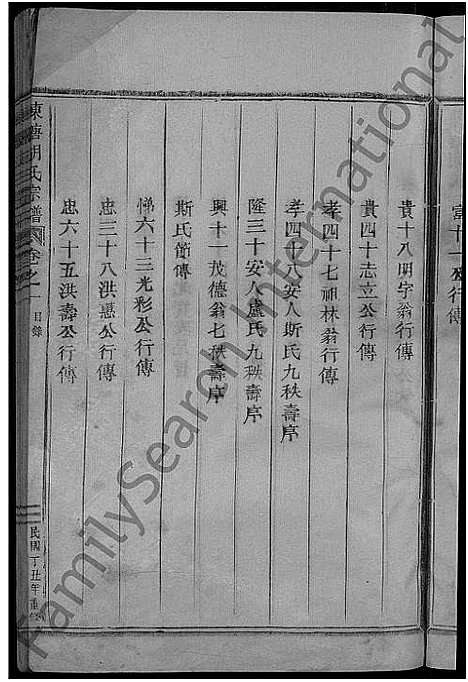 富十一公行傳
貴十八明字翁行傳
貴四十志立公行傳
孝四十七祖林翁行傳
孝四十八安人斯氏九秩壽序
隆三十安人盧氏九秩壽序
興十一茂德翁七秩壽序
斯氏節傳
悌六十三光彩公行傳
忠三十八洪惠公行傳
忠六十五洪壽公行傳
東塘胡氏宗譜 卷之一 目錄
民國丁丑年重修
FamilySearch International